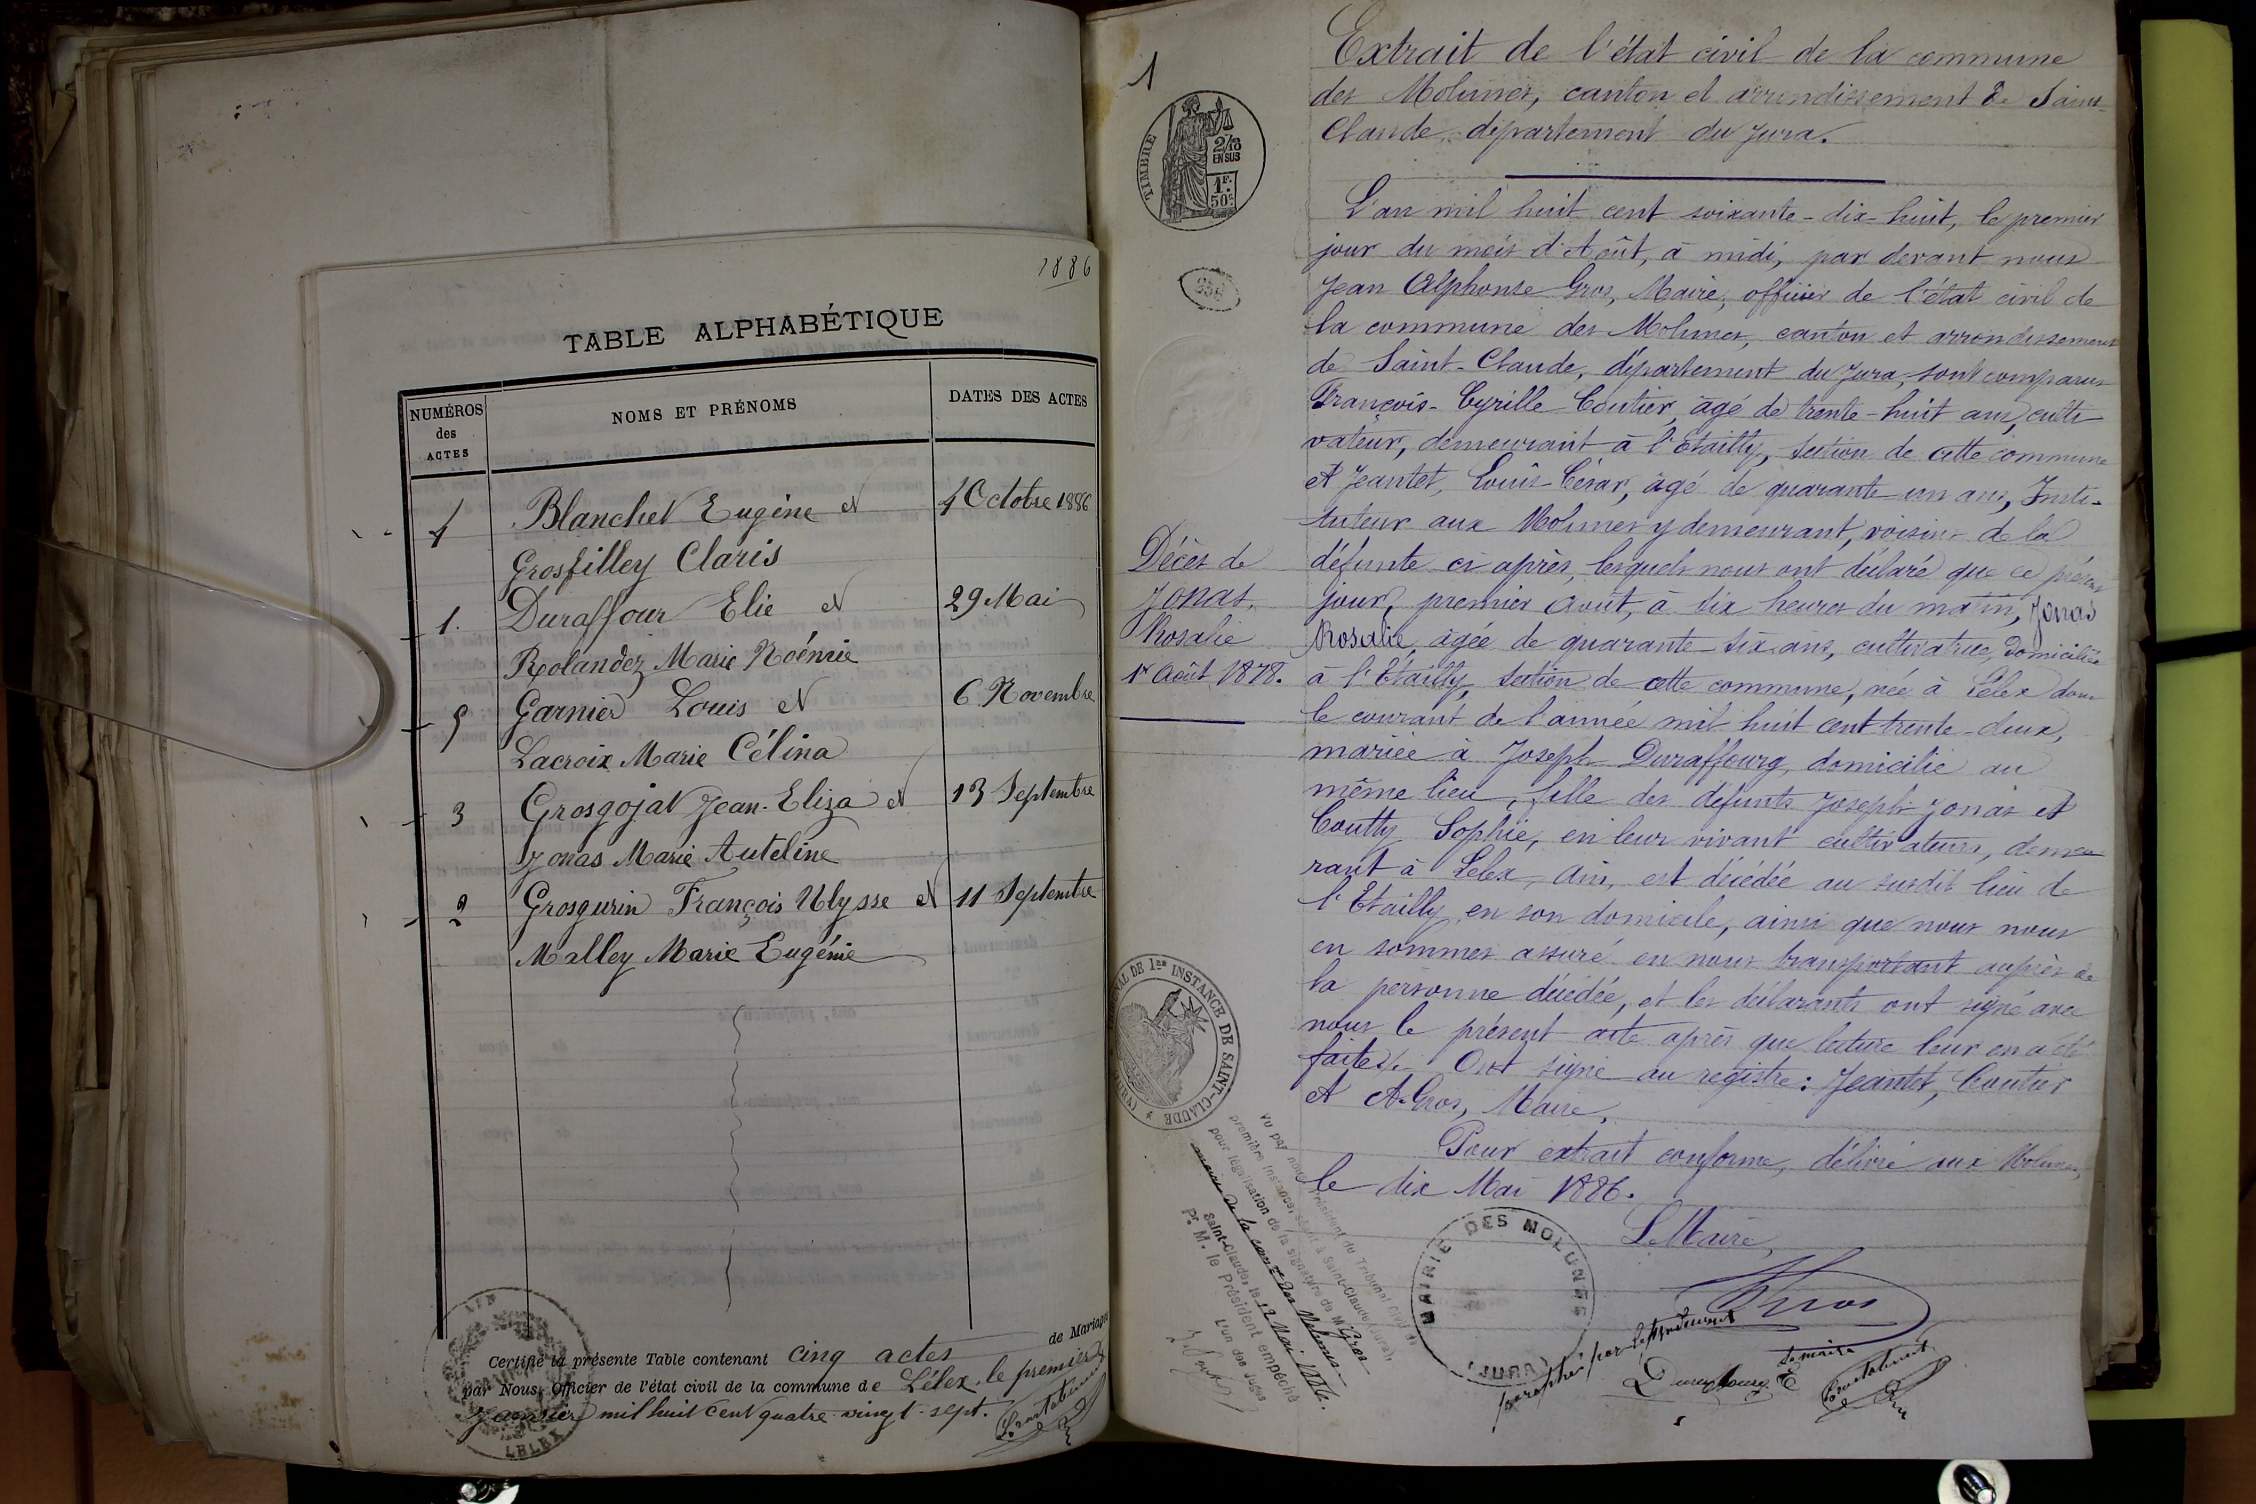 1886
TABLE ALPHABÉTIQUE
NUMÉROS des ACTES
NOMS ET PRÉNOMS
DATES DES ACTES
4 Blanchet Eugène et 4 Octobre 1886
Grosfilley Claris
1. Duraffour Elie et 29 Mai
Rolandez Marie Noémie
5 Garnier Louis et 6 Novembre
Lacroix Marie Célina
3 Grosgojat Jean-Eliza et 13 Septembre
Jonas Marie Auteline
2 Grosgurin François Ulysse et 11 Septembre
Malley Marie Eugénie
Certifié la présente Table contenant cinq actes de Mariages
par Nous, Officier de l'état civil de la commune de Lélex, le premier
Janvier mil huit cent quatre-vingt-sept.
AIN
LELEX
1
TIMBRE
2/10
EN SUS
1F.
50c.
236
Extrait de l'état civil de la commune
des Molunes, canton et arrondissement de Saint-
Claude, département du Jura.
L'an mil huit cent soixante-dix-huit, le premier
jour du mois d'Août, à midi, par devant nous
Jean Alphonse Gros, Maire, officier de l'état civil de
la commune des Molunes, canton et arrondissement
de Saint-Claude, département du Jura, sont comparus
François-Cyrille Coutier, âgé de trente-huit ans, culti
vateur, demeurant à l'Etailly, section de cette commune
et Jeantet, Louis-César, âgé de quarante-un ans, Insti-
tuteur aux Molunes y demeurant, voisins de la
défunte ci après, lesquels nous ont déclaré que ce présent
jour, premier Août, à dix heures du matin, Jonas
Rosalie, âgée de quarante-six ans, cultivatrice, domiciliée
à l'Etailly, section de cette commune, née à Lélex dans
le courant de l'année mil huit cent trente-deux,
mariée à Joseph Duraffourg, domicilié au
même lieu, fille des défunts Joseph Jonas et
Coutty Sophie, en leur vivant cultivateurs, demeu
rant à Lélex, Ain, est décédée au susdit lieu de
l'Etailly, en son domicile, ainsi que nous nous
en sommes assuré en nous transportant auprès de
la personne décédée, et les déclarants ont signé avec
nous le présent acte après que lecture leur en a été
faite. Ont signé au registre: Jeantet, Coutier
et A. Gros, Maire.
Pour extrait conforme, délivré aux Molunes,
le dix Mai 1886.
Le Maire,
Gros
Décès de
Jonas,
Rosalie
1er Août 1878.
TRIBUNAL DE 1re INSTANCE DE SAINT-CLAUDE (JURA)
Vu par nous Président du Tribunal Civil de
première instance, séant à Saint-Claude (Jura)
pour légalisation de la signature de M. Gros
maire de la commune des Molunes
Saint-Claude, le 12 Mai 1886.
Pr. M. le Président empêché
L'un des Juges
MAIRIE DES MOLUNES
(JURA)
paraphé par
le maire